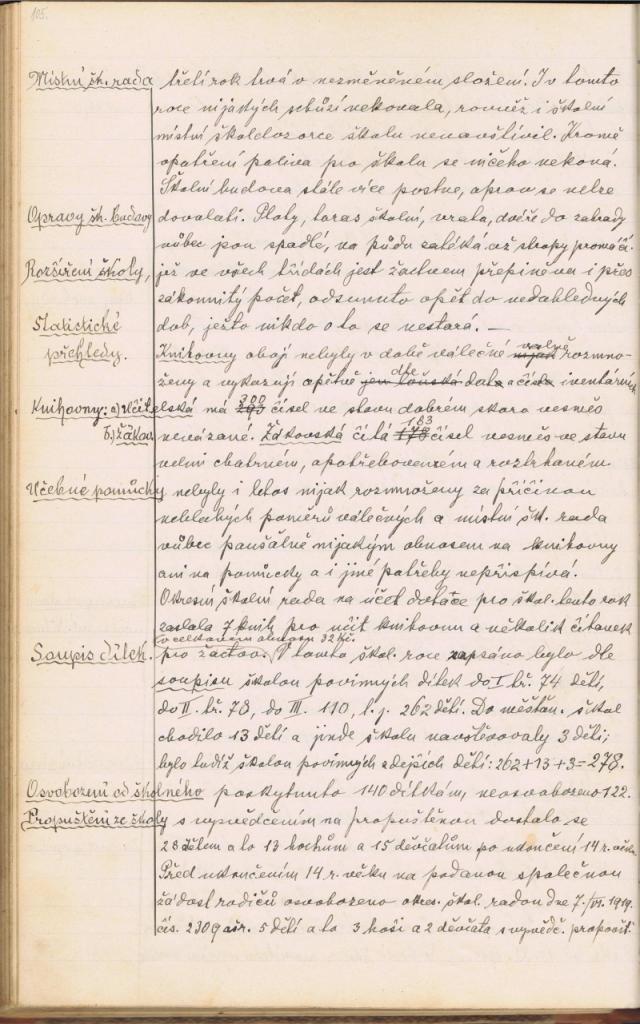 105.
Místní šk. rada třetí rok trvá v nezměněném složení. I v tomto
roce nijakých schůzí nekonala, rovněž i školní
místní školdozorce školu nenavštívil. Kromě
opatření paliva pro školu se ničeho nekoná.
Školní budova stále více pustne, oprav se nelze
Opravy šk. budovy dovolati. Ploty, taras školní, vrata, dvéře do zahrady
vůbec jsou spadlé, na půdu zatéká až stropy promáčí.
Rozšíření školy, jež ve všech třídách jest žactvem přeplněna i přes
zákonnitý počet, odsunuto opět do nedohledných
Statistické dob, ježto nikdo o to se nestará. —
přehledy. Knihovny obojí nebyly v době válečné valně rozmno-
ženy a vykazují dle data a čísla inventárních
Knihovny: a) Učitelská má 300 čísel ve stavu dobrém skoro vesměs
b.) žákov. nevázané. Žákovská čítá 183 čísel vesměs ve stavu
velmi chatrném, opotřebovaném a roztrhaném.
Učebné pomůcky nebyly i letos nijak rozmnoženy za příčinou
neblahých poměrů válečných a místní šk. rada
vůbec paušálně nijakým obnosem na knihovny
ani na pomůcky a i jiné potřeby nepřispívá.
Okresní školní rada na účet dotace pro škol. tento rok
zaslala 7 knih pro učit knihovnu a několik čítanek
v celkovém obnosu 32 Kč.
Soupis dítek. pro žactvo. V tomto škol. roce zapsáno bylo dle
soupisu školou povinných dítek do I tř. 74 dětí,
do II. tř. 78, do III. 110, t. j. 262 dětí. Do měšťan. škol
chodilo 13 dětí a jinde školu navštěvovaly 3 děti;
bylo tudíž školou povinných zdejších dětí: 262+13+3=278.
Osvobození od školného poskytnuto 140 dítkám, neosvobozeno 122.
Propuštění ze školy s vysvědcením na propuštěnou dostalo se
28 dětem a to 13 hochům a 15 děvčatům po ukončení 14 r. věku.
Před ukončením 14 r. věku na podanou společnou
žádost rodičů osvobozeno okres. škol. radou dne 7./VI. 1919.
čís. 2309 ašr. 5 dětí a to 3 hoši a 2 děvčata s vysvědč. propoušt.